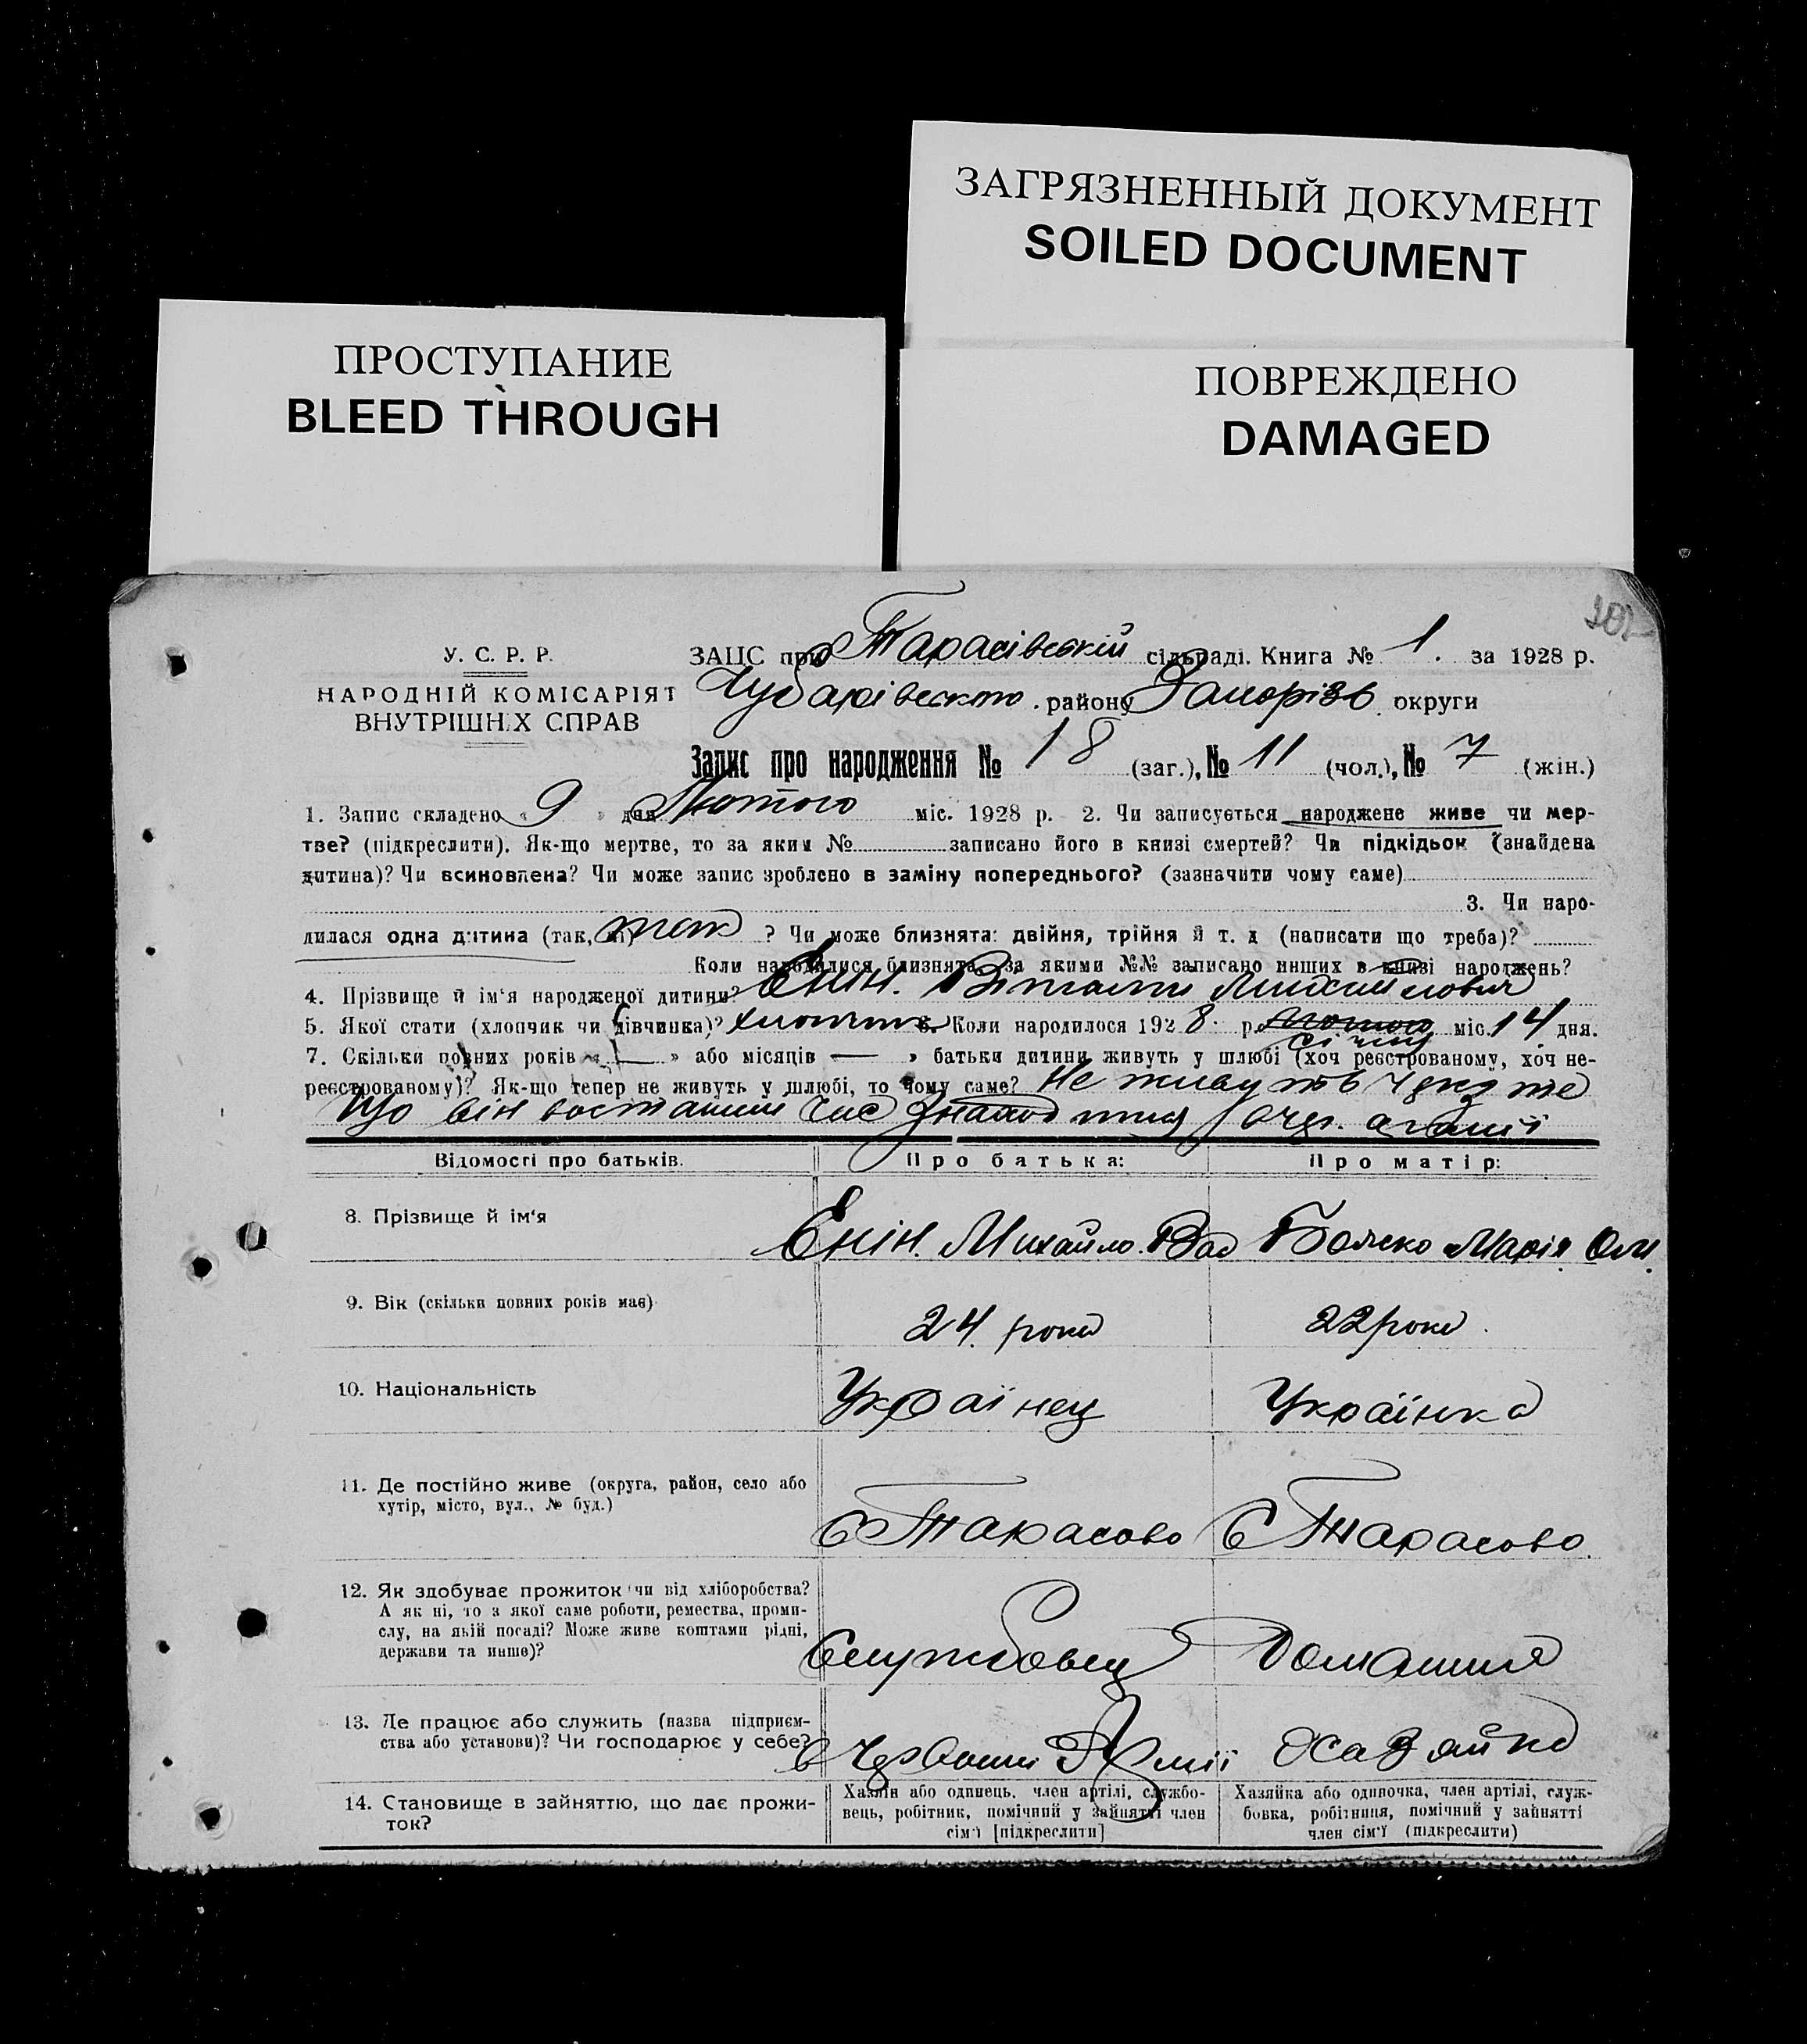 ЗАГРЯЗНЕННЫЙ ДОКУМЕНТ
SOILED DOCUMENT
ПРОСТУПАНИЕ
BLEED THROUGH
ПОВРЕЖДЕНО
DAMAGED
У. С. Р. Р.
НАРОДНІЙ КОМІСАРІЯТ
ВНУТРІШНІХ СПРАВ
ЗАЦС при Тарасівській сільраді. Книга № 1. за 1928 р.
Чубарівського району Запоріз округи
Запис про народження № 18 (заг.), № 11 (чол.), № 7 (жін.)
1. Запис складено „ 9 " дня Лютого міс. 1928 р. 2. Чи записується народжене живе чи мер-
тве? (підкреслити). Як-що мертве, то за яким № записано його в книзі смертей? Чи підкідьок (знайдена
дитина)? Чи всиновлена? Чи може запис зроблено в заміну попереднього? (зазначити чому саме)
3. Чи наро-
дилася одна дитина (так, ні) так ? Чи може близнята: двійня, трійня й т. д (написати що треба)?
Коли народилися близнята, за якими №№ записано инших в книзі народжень?
4. Прізвище й ім'я народженої дитини? Єнін. Віталій Михайлович
5. Якої стати (хлопчик чи дівчинка)? хлопчик 6. Коли народилося 1928 р. лютого січня міс. 14 дня.
7. Скільки повних років „ 1 — " або місяців — " батьки дитини живуть у шлюбі (хоч реєстрованому, хоч не-
реєстрованому)? Як-що тепер не живуть у шлюбі, то чому саме? Не живуть чєрз те
що він востанній час знаходится
Відомості про батьків.
Про батька:
Про матір:
8. Прізвище й ім'я
Єнін. Михайло. Вас
Марія
9. Вік (скільки повних років має)
24. роки
22 роки.
10. Національність
Українец
Українка
11. Де постійно живе (округа, район, село або
хутір, місто, вул., № буд.)
С Тарасово
С Тарасово
12. Як здобуває прожиток чи від хліборобства?
А як ні, то з якої саме роботи, ремества, проми-
слу, на якій посаді? Може живе коштами рідні,
держави та инше)?
Службовец
Домашня
13. Де працює або служить (назва підприєм-
ства або установи)? Чи господарює у себе?
в Червоній Армії
14. Становище в зайняттю, що дає прожи-
ток?
Хазяїн або одинець, член артілі, службо-
вець, робітник, помічний у зайнятті член
сім'ї [підкреслити]
Хазяйка або одиночка, член артілі, служ-
бовка, робітниця, помічний у зайнятті
член сім'ї (підкреслити)